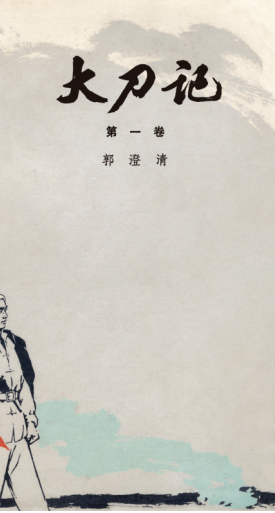 大刀记
第一卷
郭澄清